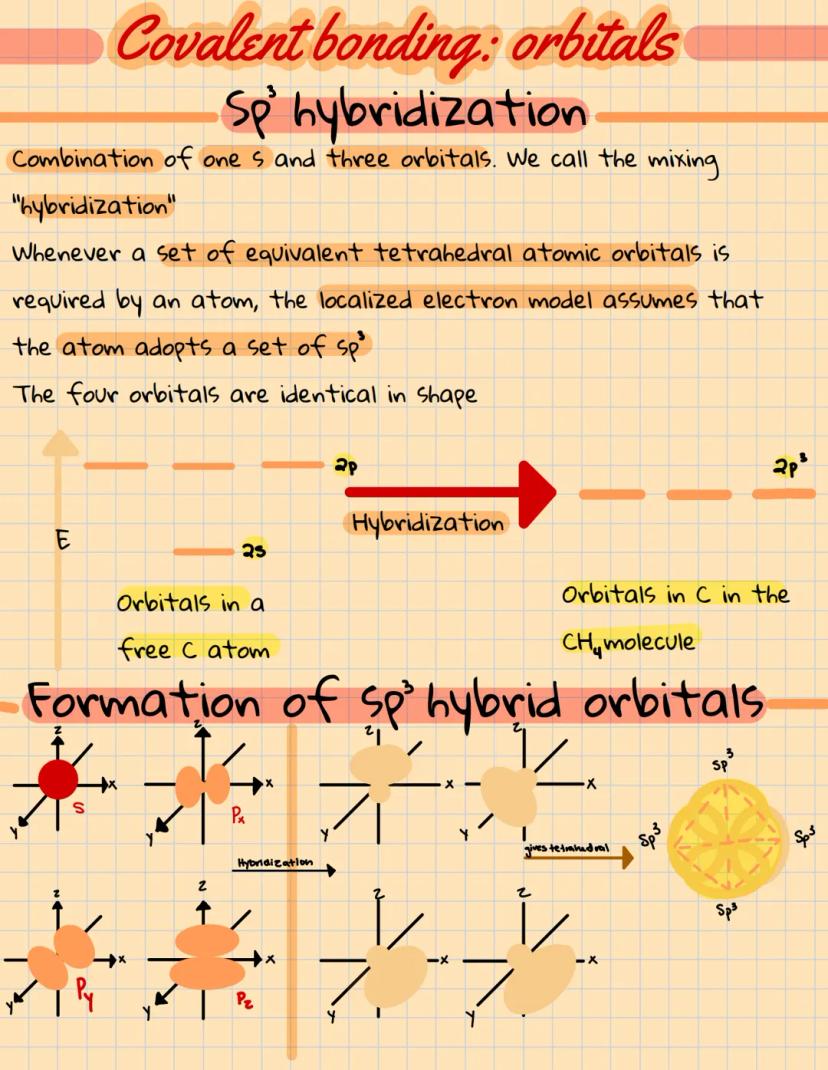 Covalent bonding: orbitals
Sp³ hybridization
Combination of one s and three orbitals. We call the mixing
"hybridization"
Whenever a set of equivalent tetrahedral atomic orbitals is
required by an atom, the localized electron model assumes that
the atom adopts a set of sp³
The four orbitals are identical in shape
2p
2p³
Hybridization
E
2s
Orbitals in a
free C atom
Orbitals in C in the
CH₄ molecule
Formation of sp³ hybrid orbitals
z
x
y
S
z
x
y
Px
z
x
y
z
x
y
Hybridization
gives tetrahedral
Sp³
Sp³
Sp³
Sp³
z
x
y
Py
z
x
y
Pz
z
x
y
z
x
y